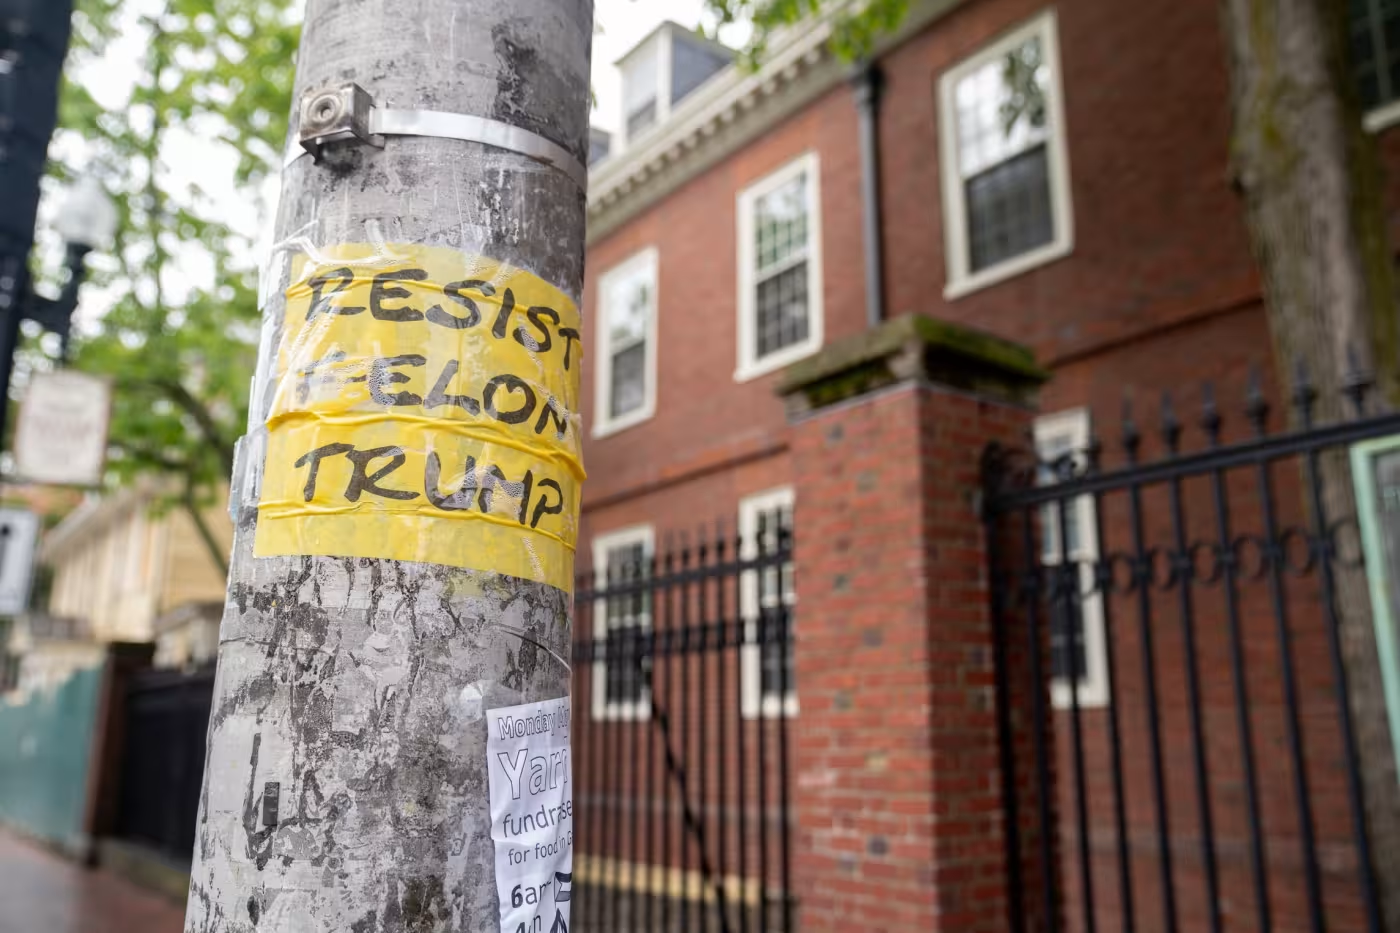 RESIST
FELON
TRUMP
Monday
Yarn
fundraise
for food in
6am